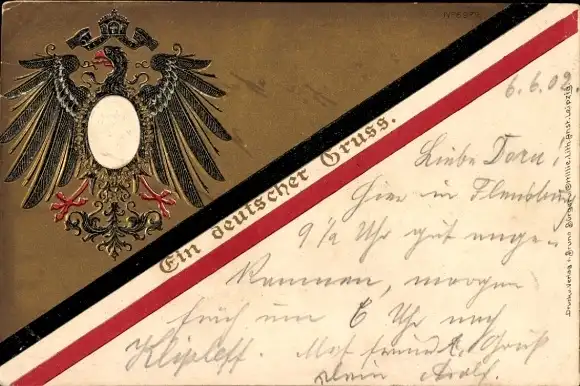 No 6372
6.6.02.
Ein deutscher Gruss.
Liebe Dora!
Hier in Flensburg
9 1/2 Uhr gut ange-
kommen, morgen
früh um 6 Uhr nach
Klipleff. Gruß
Dein Adolf.
Druck u. Verlag v. Bruno Bürger & Ottillie, Lith. Anst. Leipzig